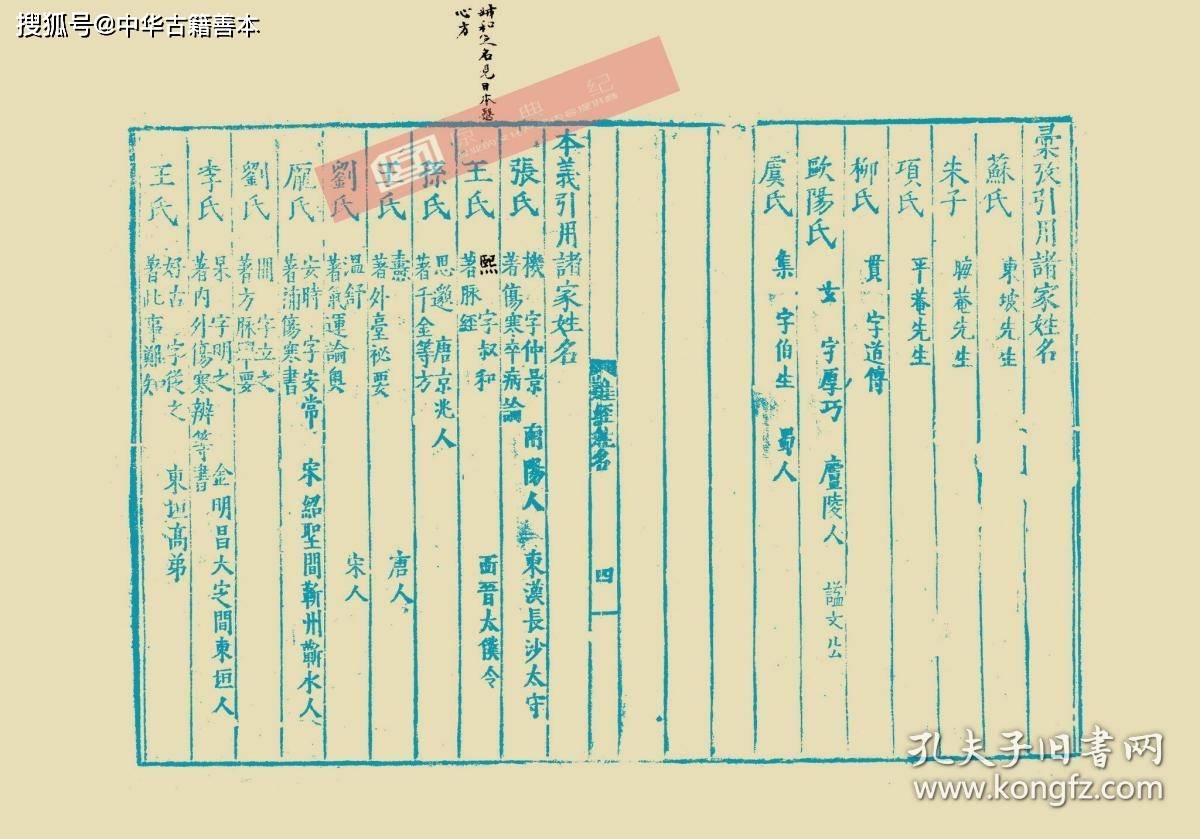 搜狐号@中华古籍善本
姉和之名見日本醫
心方
彚攷引用諸家姓名
蘇氏 東坡先生
朱子 晦菴先生
項氏 平菴先生
柳氏 貫 字道傳
歐陽氏 玄 字厚巧 廬陵人 諡文
虞氏 集 字伯生 蜀人
難經姓名 四
本義引用諸家姓名
張氏 機 字仲景 南陽人 東漢長沙太守
著傷寒卒病論
王氏 熙 字叔和 西晉太僕令
著脉經
孫氏 思邈 唐京兆人
著千金等方
王氏 燾 唐人
著外臺祕要
劉氏 温舒 宋人
著氣運論奥
龎氏 安時 字安常 宋紹聖間蘄州蘄水人
著補傷寒書
劉氏 開 字立之
著方脉舉要
李氏 杲 字明之 金明昌大定間東垣人
著内外傷寒辨等書
王氏 好古 字從之 東垣高弟
著此事難知
孔夫子旧书网
www.kongfz.com